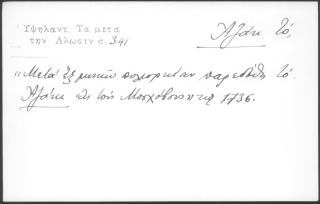 Ὑψηλαντ Τα μετα
την Αλωσιν σ. 341
Ἀζάκ τό,
"Μετά ἑξ μηνῶν πολιορκίαν παρεδόθη τό
Ἀζάκ εἰς τούς Μοσχόβους τῷ 1736.